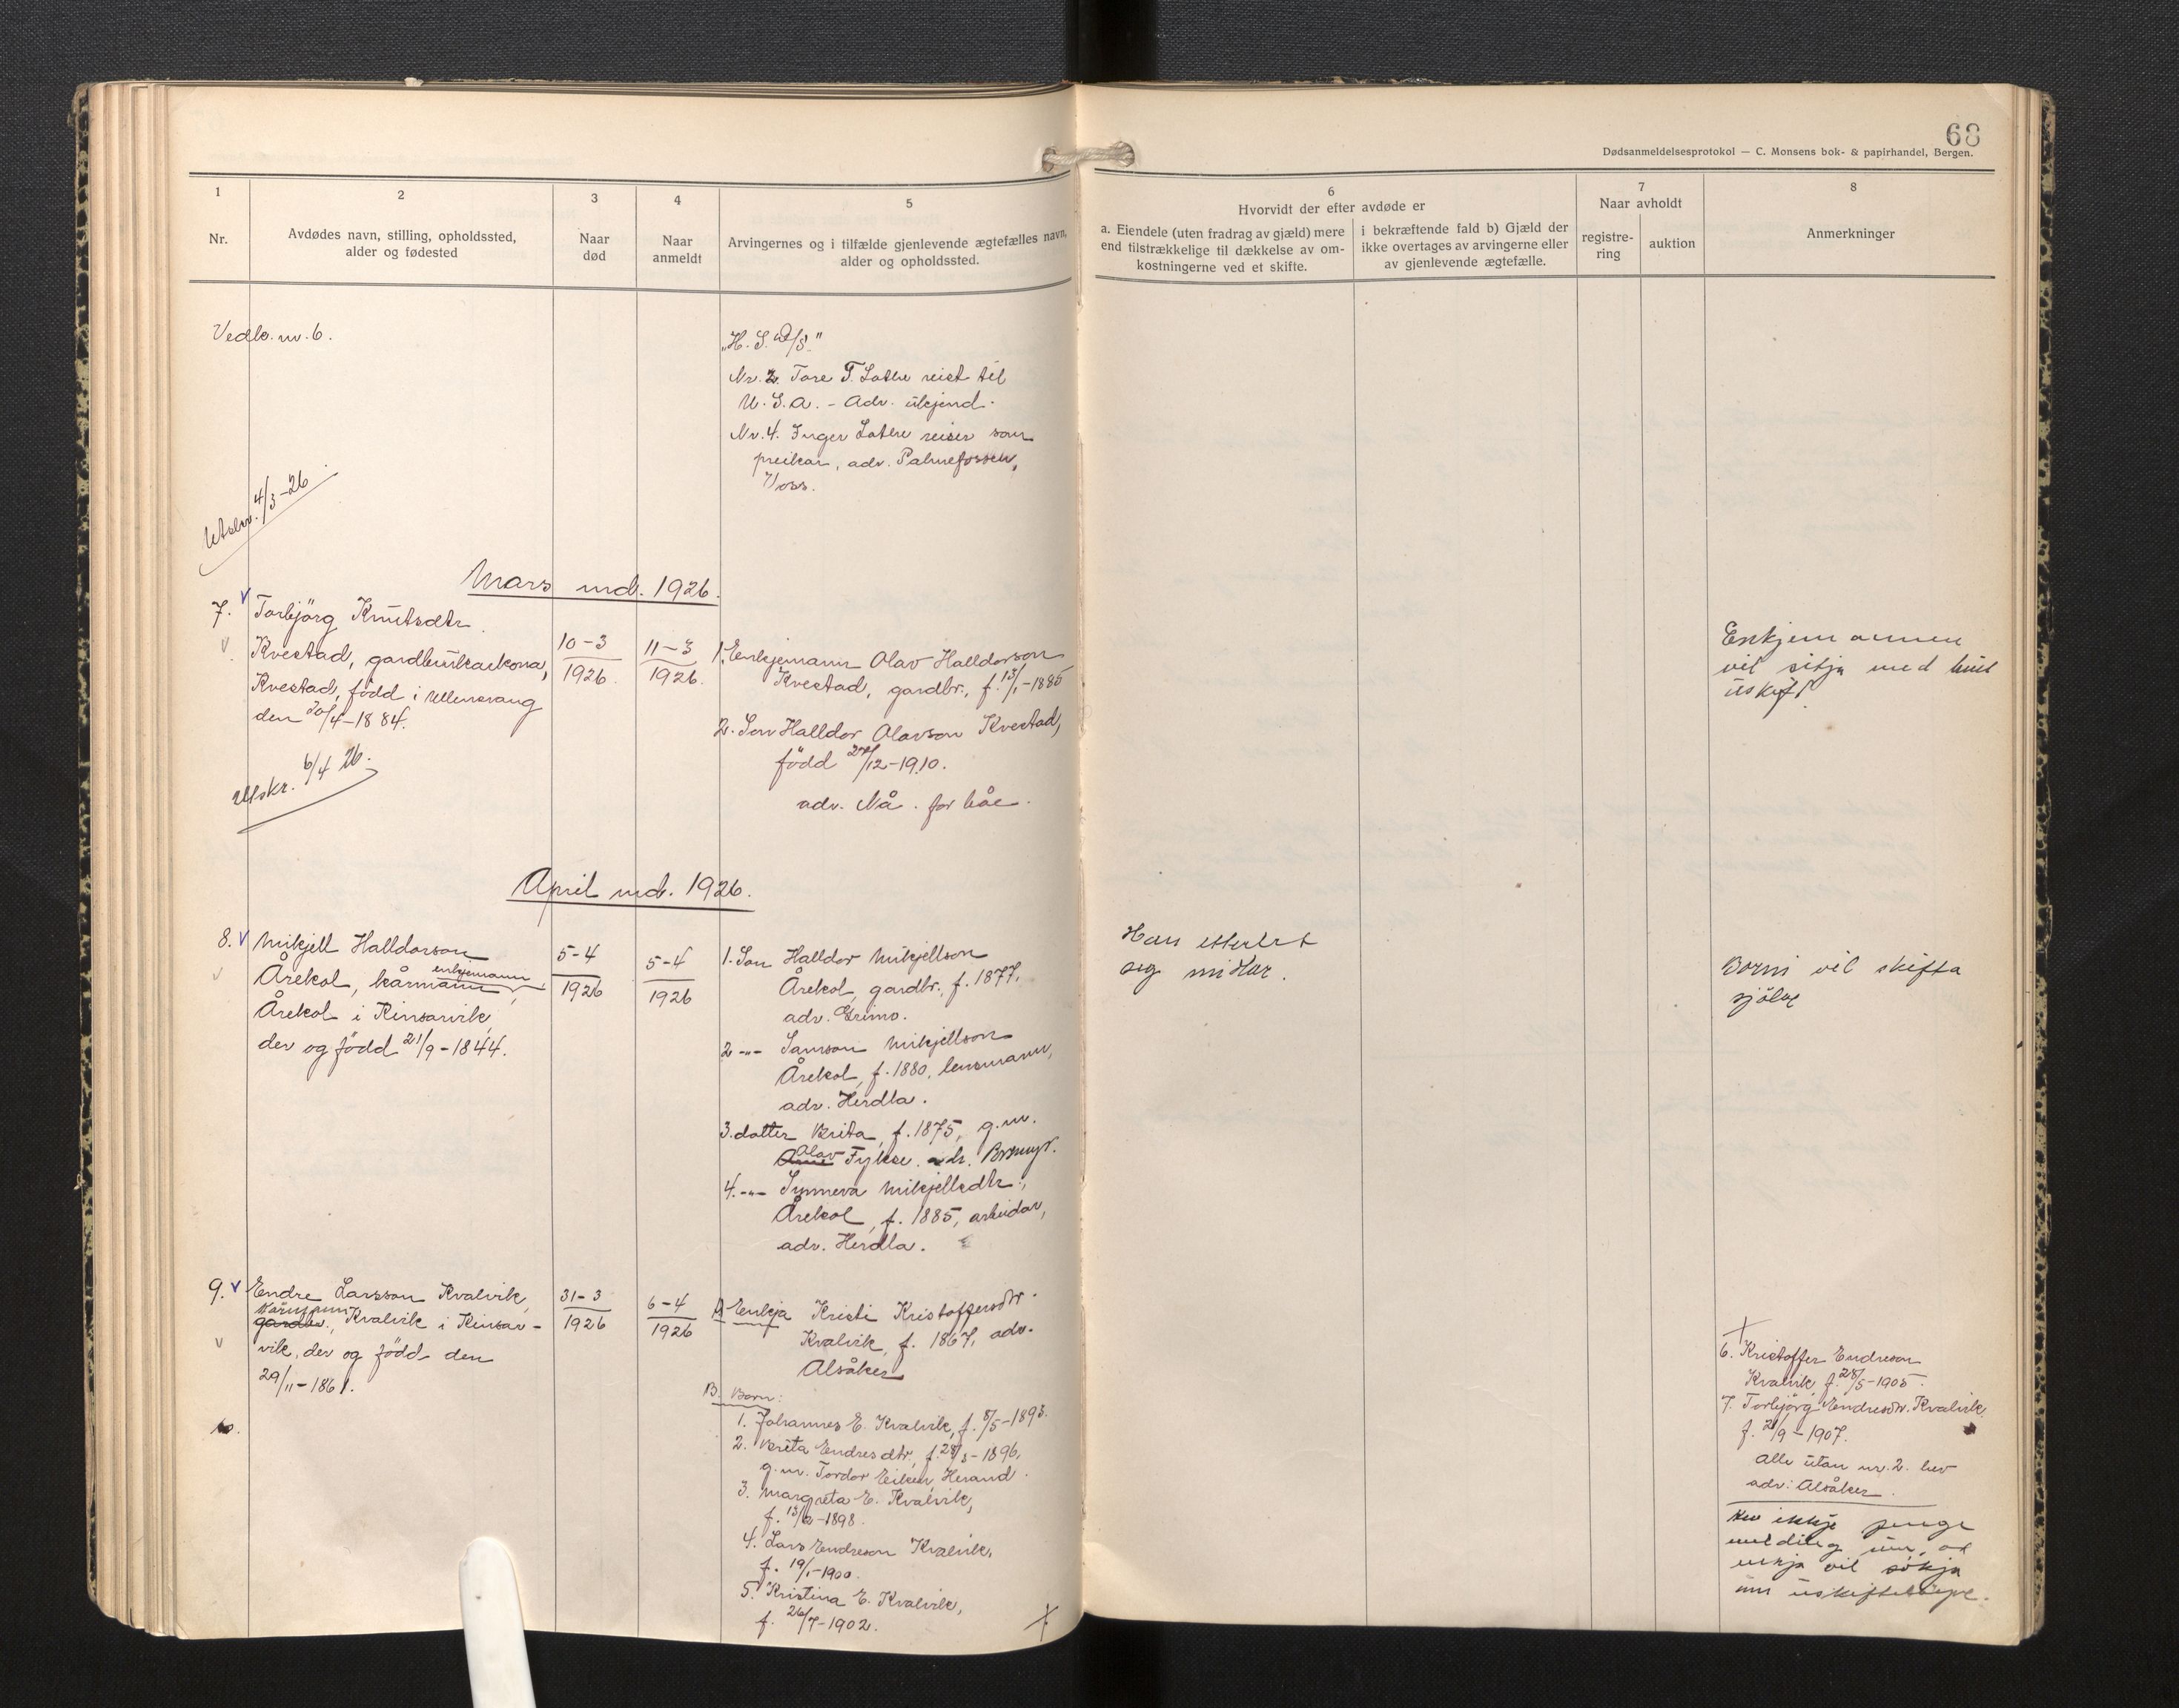 68
Dødsanmeldelsesprotokol — C. Monsens bok- & papirhandel, Bergen.
1
Nr.
2
Avdødes navn, stilling, opholdssted,
alder og fødested
3
Naar
død
4
Naar
anmeldt
5
Arvingernes og i tilfælde gjenlevende ægtefælles navn,
alder og opholdssted.
6
Hvorvidt der efter avdøde er
a. Eiendele (uten fradrag av gjæld) mere
end tilstrækkelige til dækkelse av om-
kostningerne ved et skifte.
i bekræftende fald b) Gjæld der
ikke overtages av arvingerne eller
av gjenlevende ægtefælle.
7
Naar avholdt
registre-
ring
auktion
8
Anmerkninger
Vedk. nr. 6.
Nr. 2. Tore T. Lothe reist til
U.S.A. - Adr. ukjend.
Nr. 4. Inger Lothe reiser som
preikar, adr. Palmefossen,
Voss.
Utskr. 4/3-26
Mars md. 1926.
7. Torbjörg Knutsdtr
Kvestad, gardbrukarkona,
Kvestad, född i Ullensvang
den 30/4-1884.
10-3
1926.
11-3
1926.
1. Enkjemann Olav Halldorson
Kvestad, gardbr., f. 13/1-1885
2. Son Halldor Olavson Kvestad,
född 24/12-1910.
adr. Nå. for båe.
Enkjemannen
vil sitja med buet
uskift.
Utskr. 6/4 26.
April md. 1926.
8. Mikjell Halldorson
Årekol, kårmann, enkjemann
Årekol i Kinsarvik,
der og född 21/9-1844.
5-4
1926
5-4
1926
1. Son Halldor Mikjellson
Årekol, gardbr., f. 1877,
adr. Grimo.
2 -"- Samson Mikjellson
Årekol, f. 1880, lensmann,
adr. Herdla.
3. dotter Brita, f. 1875, g.m.
Arne Olav Fykse. adr.
4. -"- Synneva Mikjellsdtr.,
Årekol, f. 1885, arbeidar,
adr. Herdla.
Han etterlet
seg midlar.
Borni vil skifta
sjölve
9. Endre Larsson Kvalvik,
kårmann
gardbr., Kvalvik i Kinsar-
vik, der og född den
29/11-1861.
10.
31-3
1926
6-4
1926
A. Enkja Kristi Kristoffersdtr.
Kvalvik, f. 1867, adr.
Alsåker
B. Born:
1. Johannes E. Kvalvik, f. 8/5-1893.
2. Brita Endresdtr, f. 28/3-1896,
g.m. Tordor Eiken, Herand.
3. Margreta E. Kvalvik,
f. 13/2-1898.
4. Lars Endreson Kvalvik,
f. 19/1-1900.
5. Kristina E. Kvalvik,
f. 26/7-1902.
6. Kristoffer Endreson
Kvalvik, f. 28/5-1905.
7. Torbjörg Endresdtr. Kvalvik
f. 21/9-1907.
Alle utan nr. 2. hev
adr: Alsåker.
Hev ikkje
melding um, at
enkja vil sökja
um uskifteløyve.